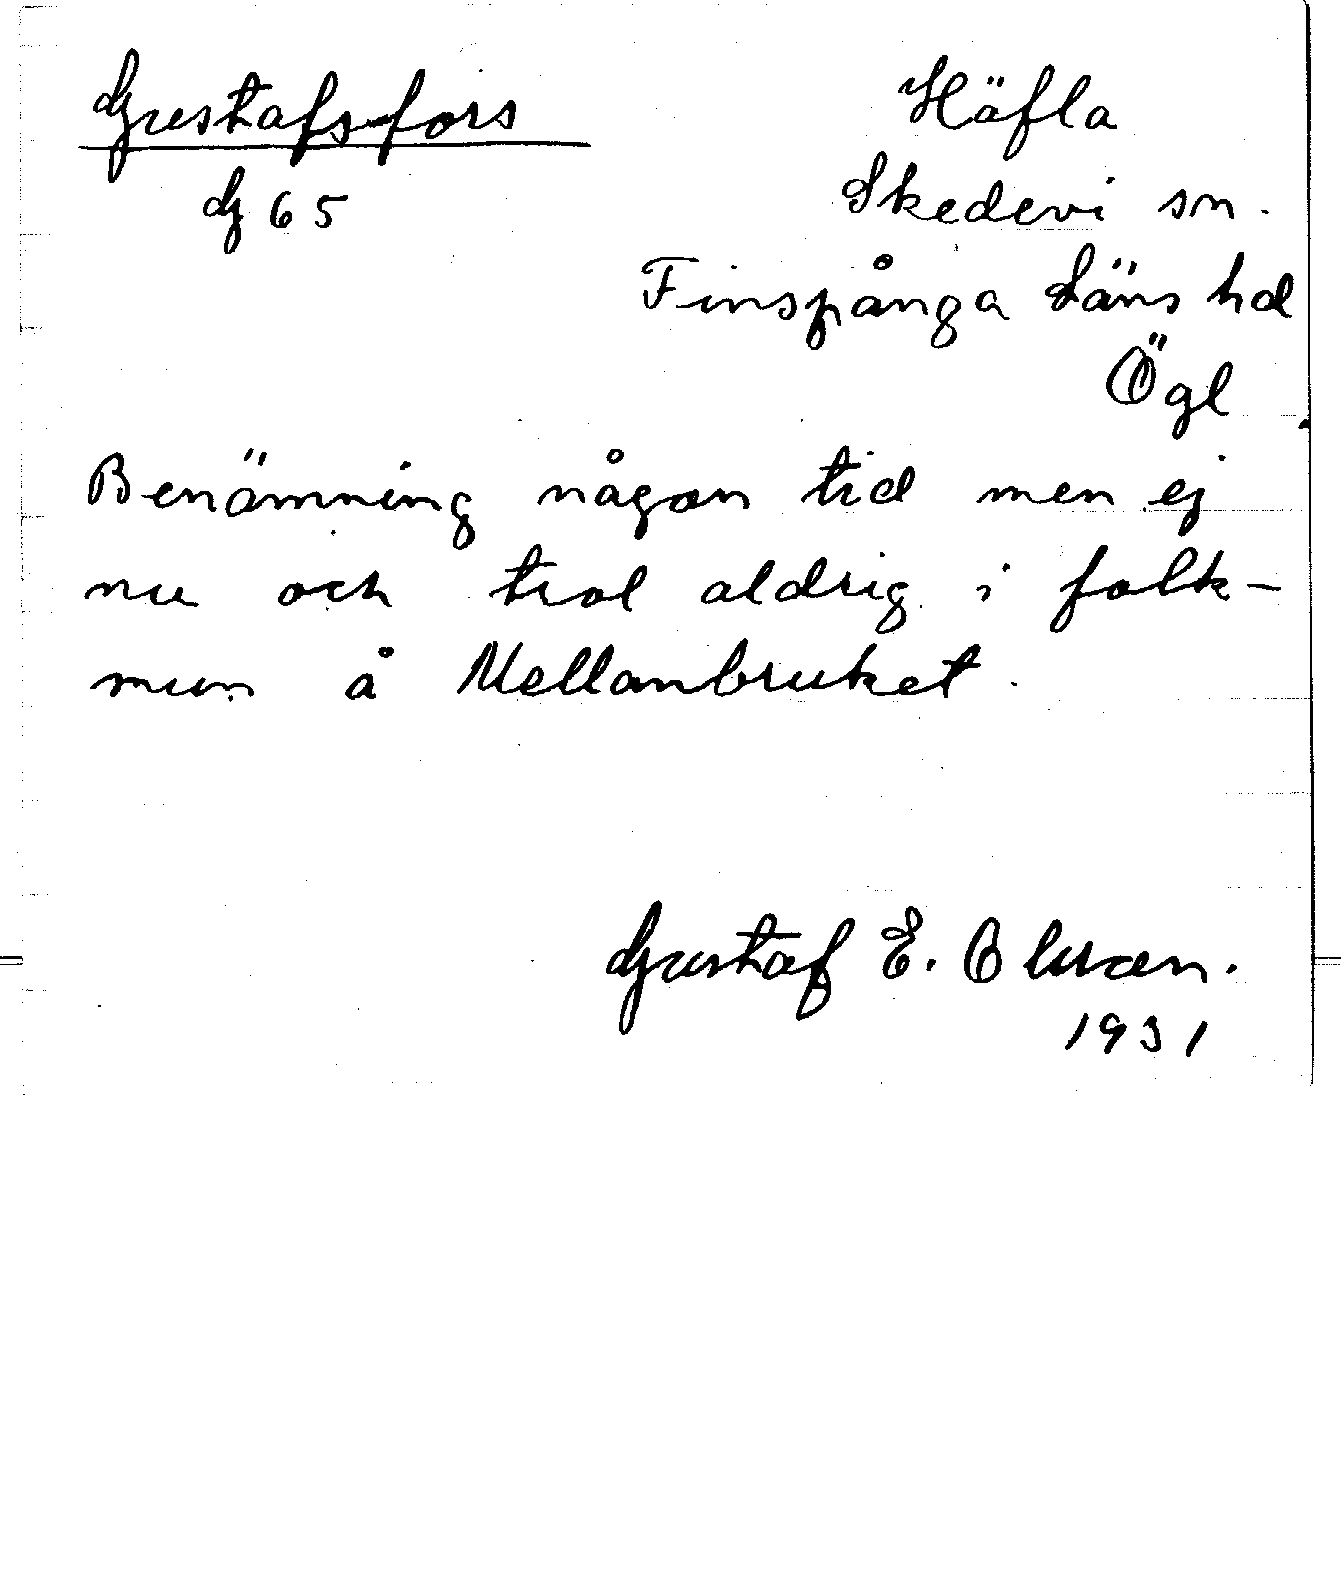 Gustafsfors
G 65
Häfla
Skedevi sn.
Finspånga Läns hd
Ögl
Benämning någon tid men ej
nu och trol aldrig i folk-
mun å Mellanbruket.
Gustaf E. Olsson.
1931